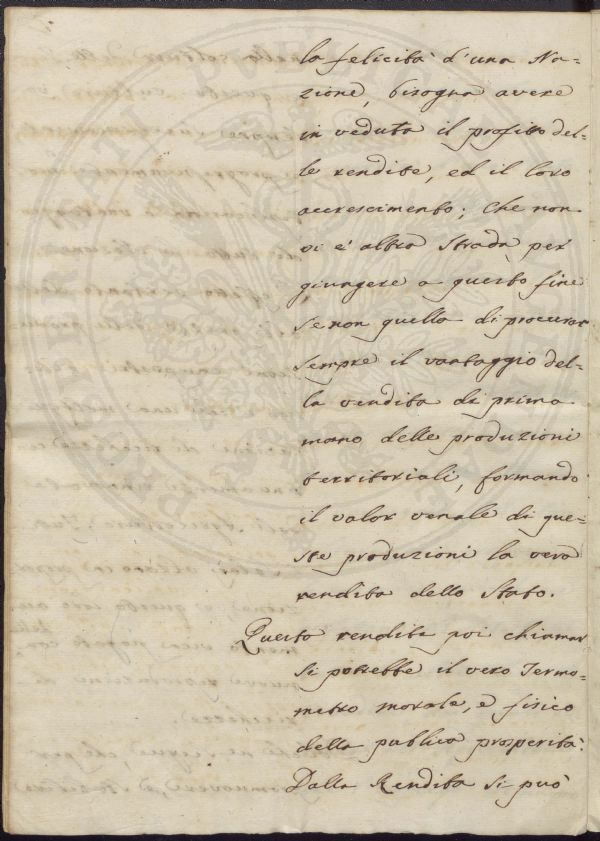 la felicità d'una Na=
zione, bisogna avere
in veduta il profitto del=
le rendite, ed il loro
accrescimento; Che non
vi è altra Strada per
giungere a questo fine
se non quella di procurar
sempre il vantaggio del=
la vendita di prima
mano delle produzioni
territoriali, formando
il valor venale di que=
ste produzioni la vera
rendita dello Stato.
Questa rendita poi chiamar
si potrebbe il vero Termo=
metro morale, e fisico
della publica prosperità:
Dalla Rendita si può